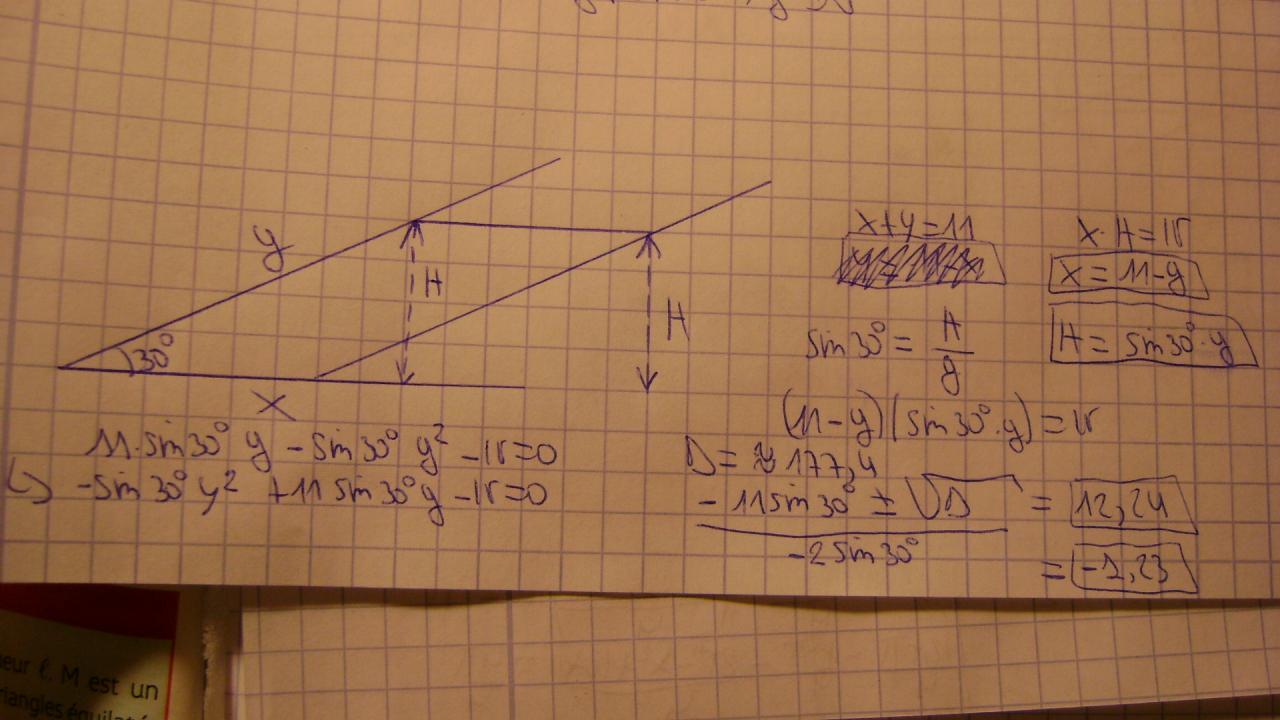 y
H
H
30°
x
x+y=11
x·H=15
x = 11-y
sin30° = H/y
H = sin30°·y
(11-y)(sin30°·y)=15
11·sin30° y -sin30° y² -15=0
↳ -sin30° y² +11 sin30° y -15=0
D= ≈ 177,4
-11sin30° ± √D / -2 sin30° = 12,24
= -1,23
M est un